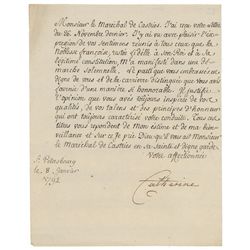 Monsieur le Maréchal de Castries. J'ai reçu votre lettre
du 26. Novembre dernier. J'y ai vu avec plaisir l'ex-
pression de vos sentimens réunis à tous ceux que la
Noblesse françoise, restée fidèle à son Roi et à sa
légitime constitution, M'a manifesté dans une dé-
marche solemnelle. Le parti que vous embrassez est
digne de vous et de la carrière distinguée que vous avez
fournie d'une manière si honorable. Il justifie
l'opinion que vous avez toujours inspirée de vos
qualités, de vos talens et des principes d'honneur
qui ont toujours caractérisé votre conduite. Tous ces
titres vous répondent de Mon estime et de ma bien-
veillance et sur ce je prie Dieu qu'il vous ait Monsieur
le Maréchal de Castries en sa sainte et digne garde
Votre affectionnée
à Petersbourg
le 8. Janvier
1792
Catherine